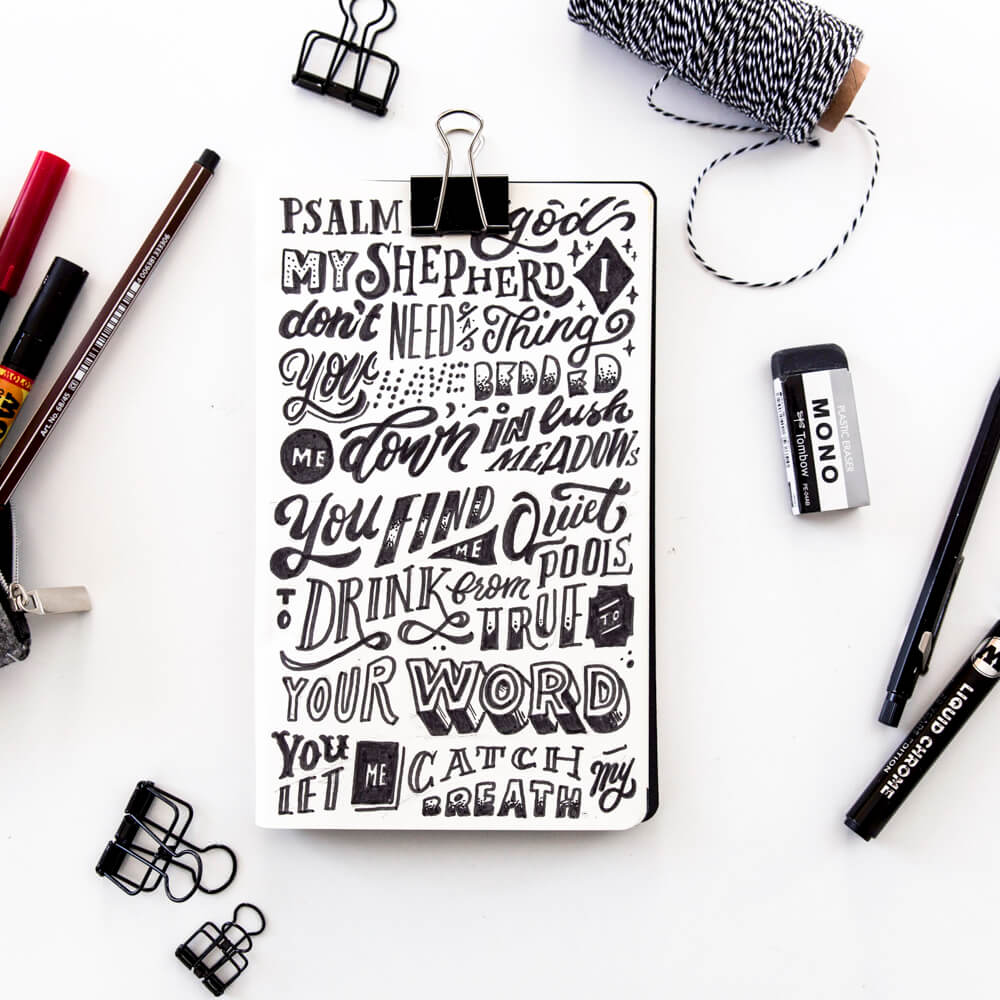 PSALM god
MY SHEPHERD I
don't NEED A Thing
You HAVE BEDDED
ME down IN lush
MEADOWS
You FIND ME Quiet
POOLS
TO DRINK from
TRUE TO
YOUR WORD
YOU LET ME CATCH MY
BREATH
Art. No. 68/45 CE 4 006381 333606
PLASTIC ERASER
MONO
Tombow PE-04AB
LIQUID CHROME
EDITION